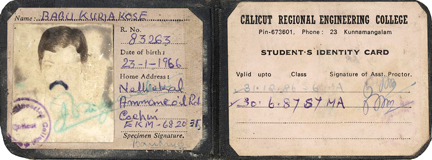 Name: BABU KURIAKOSE
R. No.
83263
Date of birth:
23-1-1966
Home Address:
Ammankovil Rd
Cochin
EKM-682035
Specimen Signature.
CALICUT REGIONAL ENGINEERING COLLEGE
Pin-673601. Phone: 23 Kunnamangalam
STUDENT'S IDENTITY CARD
Valid upto Class Signature of Asst. Proctor.
30.6.87 S7 MA